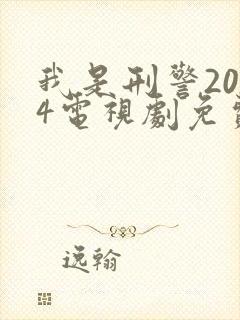 我是刑警20
4電視劇免
逸翰